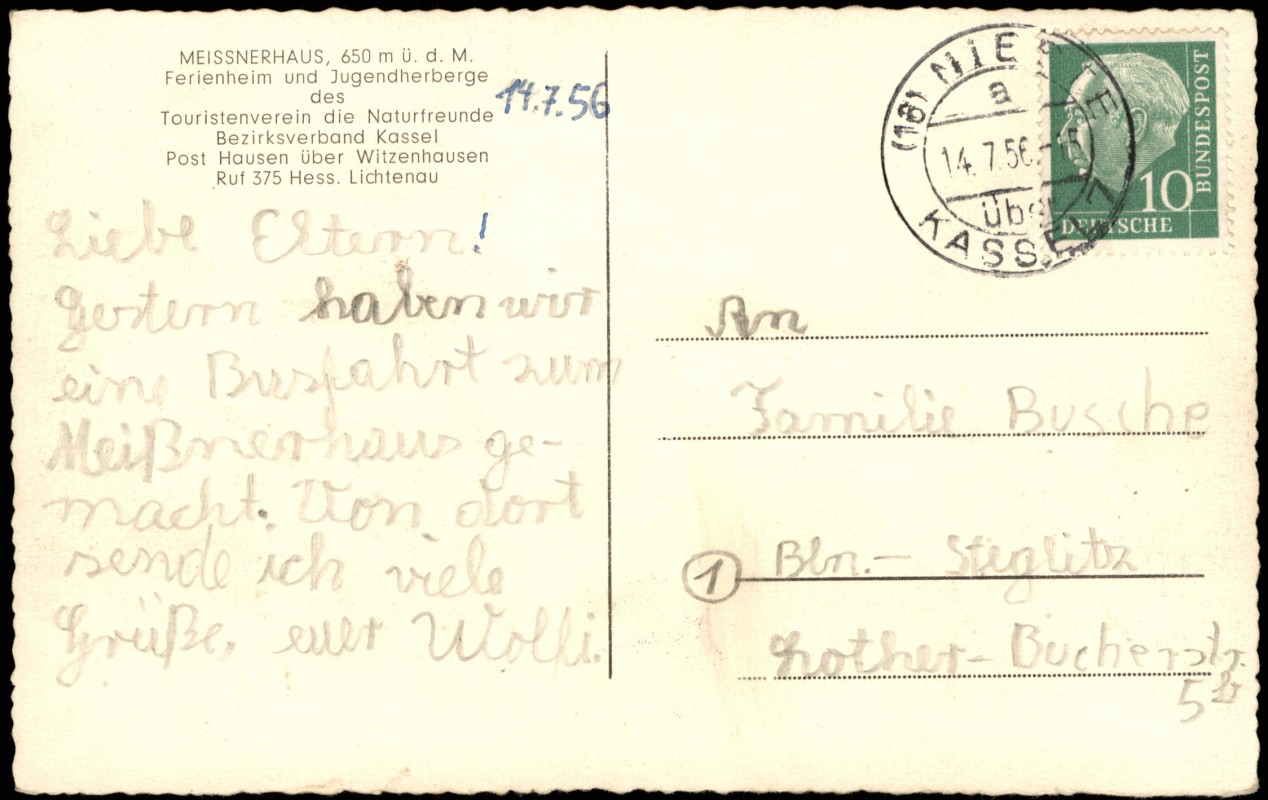 MEISSNERHAUS, 650 m ü. d. M.
Ferienheim und Jugendherberge
des
Touristenverein die Naturfreunde
Bezirksverband Kassel
Post Hausen über Witzenhausen
Ruf 375 Hess. Lichtenau
14.7.56
Liebe Eltern!
Gestern haben wir
eine Busfahrt zum
Meißnerhaus ge-
macht. Von dort
sende ich viele
Grüße. euer Wolfi.
(16)
a
14.7.56
über
KASSEL
10
DEUTSCHE
BUNDESPOST
An
Familie Busche
1 Bln.- Steglitz
Lother-Bucherstr.
5b